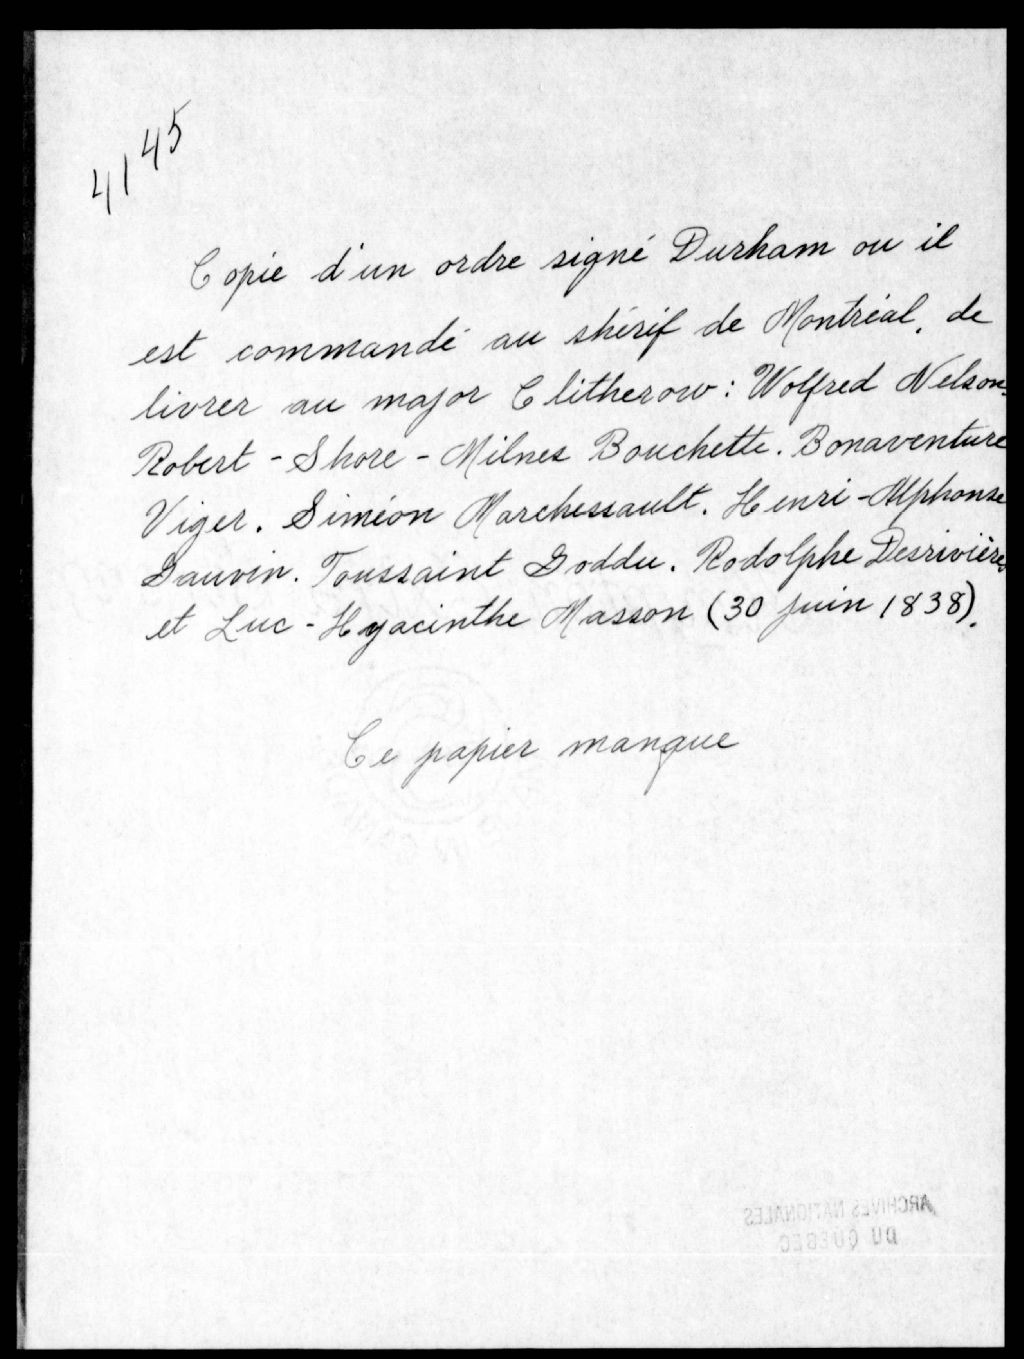 4145
Copie d'un ordre signé Durham ou il
est commandé au shérif de Montréal, de
livrer au major Clitherow: Wolfred Nelson.
Robert-Shore-Milnes Bouchette. Bonaventure
Viger. Siméon Marchessault. Henri-Alphonse
Gauvin. Toussaint Goddu. Rodolphe Desrivières
et Luc-Hyacinthe Masson (30 juin 1838).
Ce papier manque
ARCHIVES NATIONALES
DU QUEBEC